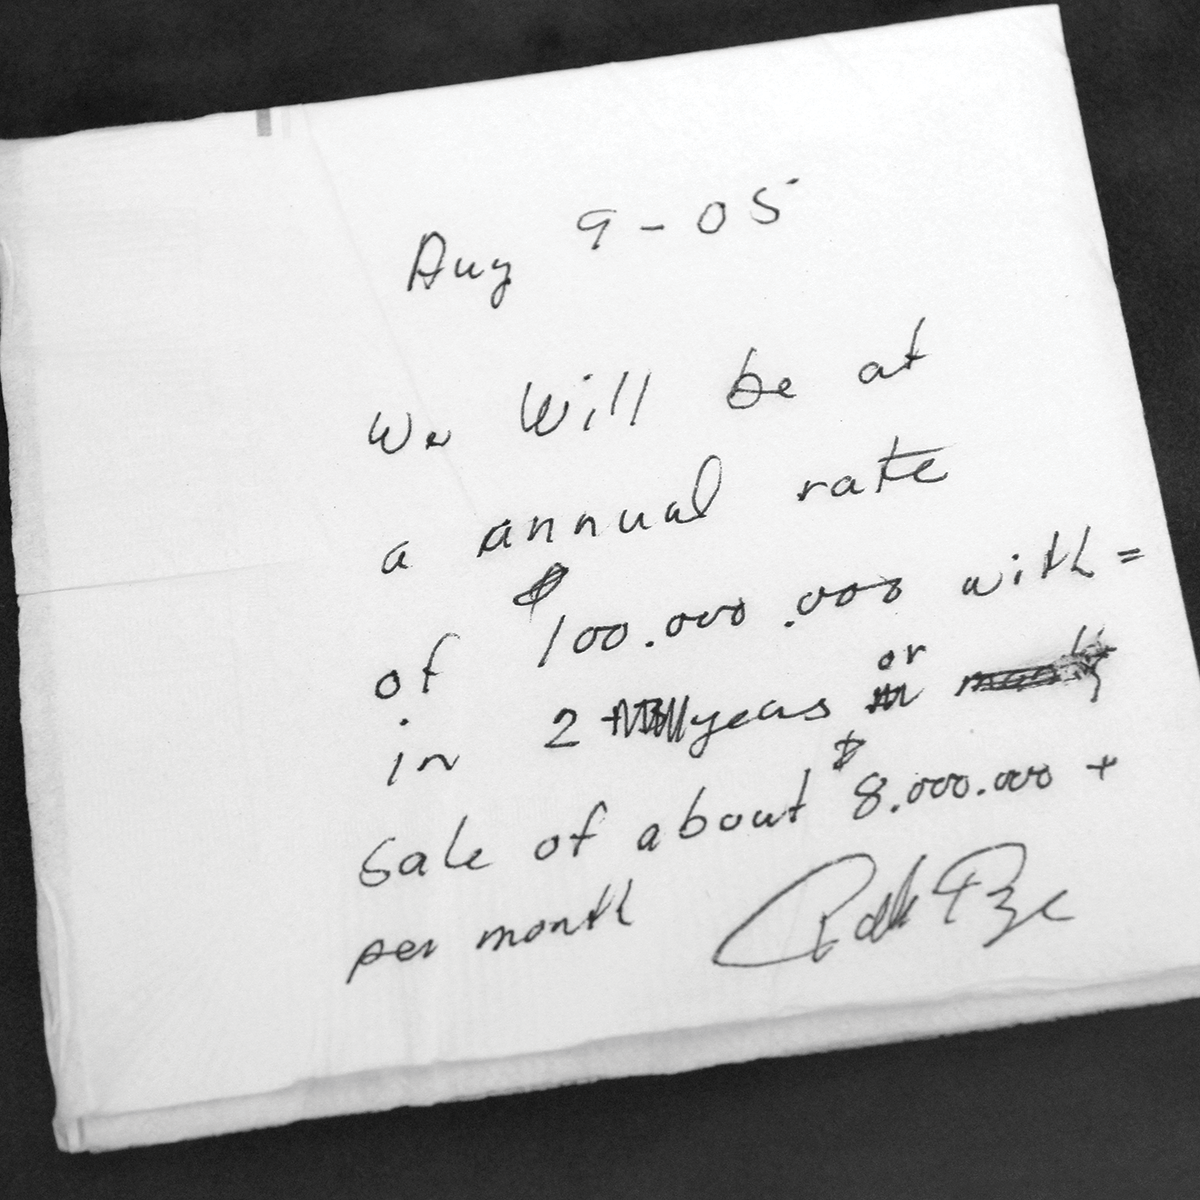 Aug 9-05
We Will be at
a annual rate
of $100.000.000 with=
in 2 years or
Sale of about $8.000.000 +
per month